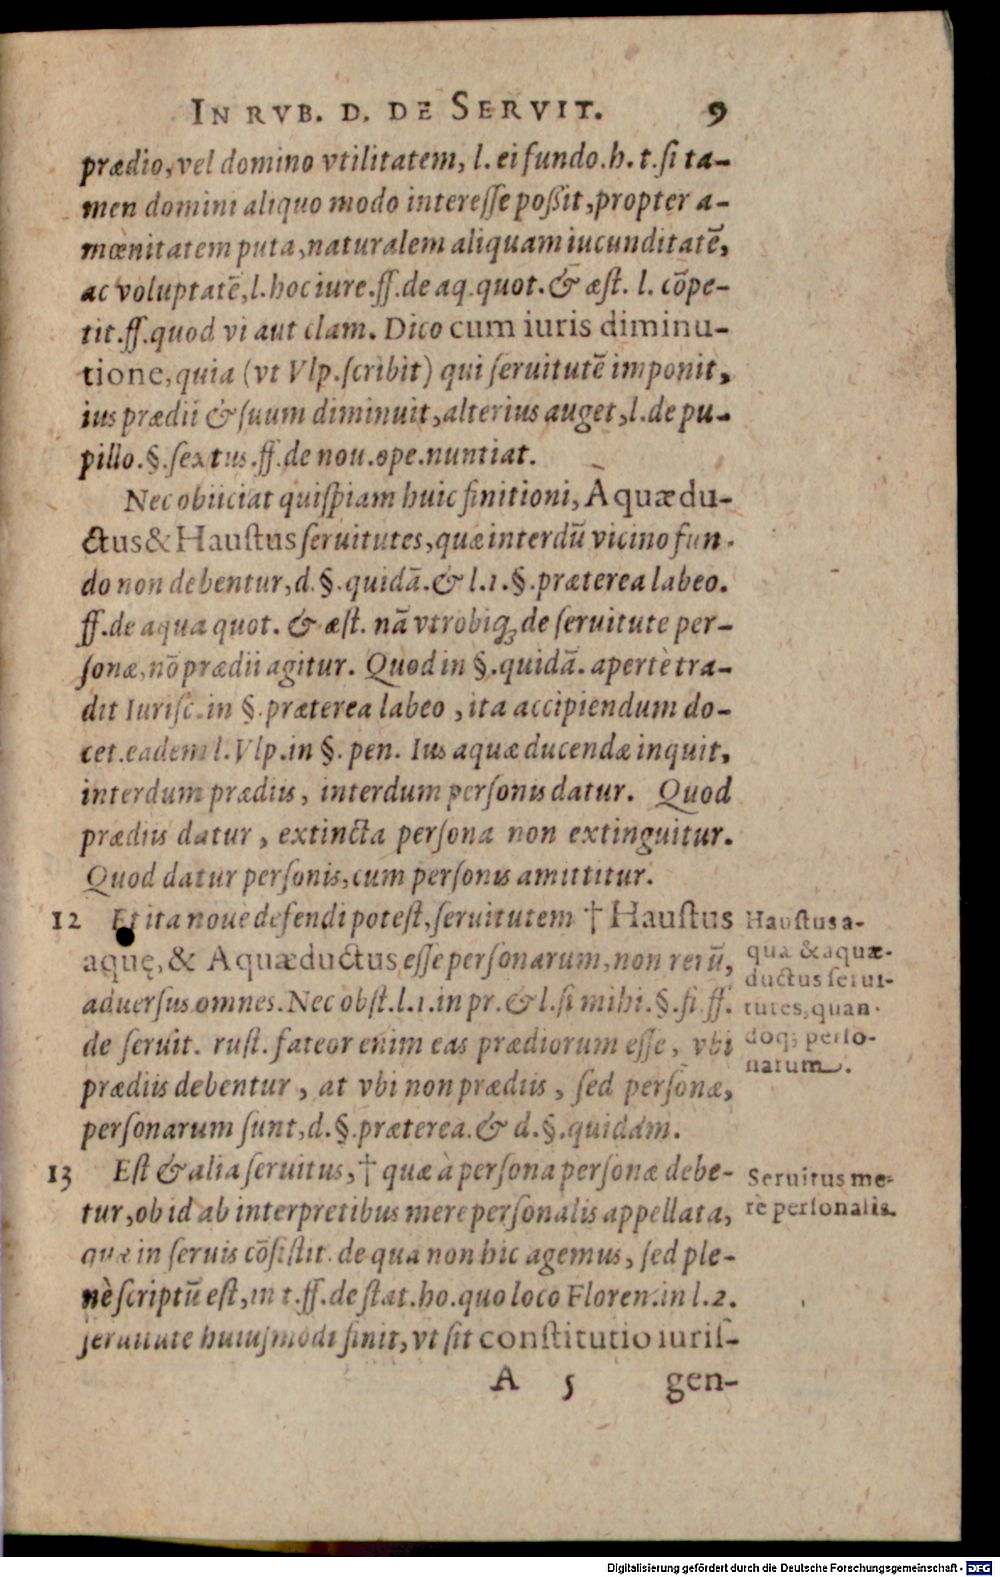 IN RVB. D. DE SERVIT. 9
prædio, vel domino vtilitatem, l. ei fundo. h. t. ſi ta-
men domini aliquo modo intereſſe poßit, propter a-
mœnitatem puta, naturalem aliquam iucunditatē,
ac voluptatē, l. hoc iure. ff. de aq. quot. & æſt. l. cōpe-
tit. ff. quod vi aut clam. Dico cum iuris diminu-
tione, quia (vt Vlp. ſcribit) qui ſeruitutē imponit,
ius prædii & ſuum diminuit, alterius auget, l. de pu-
pillo. §. ſextus. ff. de nou. ope. nuntiat.
Nec obiiciat quiſpiam huic finitioni, Aquædu-
ctus & Hauſtus ſeruitutes, quæ interdū vicino fun-
do non debentur, d. §. quidā. & l. 1. §. præterea labeo.
ff. de aqua quot. & æſt. nā vtrobiq; de ſeruitute per-
ſonæ, nō prædii agitur. Quod in §. quidā. apertè tra-
dit Iuriſc. in §. præterea labeo, ita accipiendum do-
cet. eadem l. Vlp. in §. pen. Ius aquæ ducendæ inquit,
interdum prædiis, interdum perſonis datur. Quod
prædiis datur, extincta perſona non extinguitur.
Quod datur perſonis, cum perſonis amittitur.
12 Et ita noue defendi poteſt, ſeruitutem † Hauſtus
aquę, & Aquæductus eſſe perſonarum, non rerū,
aduerſus omnes. Nec obſt. l. 1. in pr. & l. ſi mihi. §. ſi. ff.
de ſeruit. ruſt. fateor enim eas prædiorum eſſe, vbi
prædiis debentur, at vbi non prædiis, ſed perſonæ,
perſonarum ſunt, d. §. præterea. & d. §. quidam.
Hauſtus a-
quæ & aquæ-
ductus ſerui-
tutes, quan-
doq; perſo-
narum.
13 Eſt & alia ſeruitus, † quæ à perſona perſonæ debe-
tur, ob id ab interpretibus mere perſonalis appellata,
quæ in ſeruis cōſiſtit. de qua non hic agemus, ſed ple-
nè ſcriptū eſt, in t. ff. de ſtat. ho. quo loco Floren. in l. 2.
ſeruitute huiuſmodi finit, vt ſit conſtitutio iuriſ-
Seruitus me-
rè perſonalis.
A 5 gen-
Digitalisierung gefördert durch die Deutsche Forschungsgemeinschaft - DFG